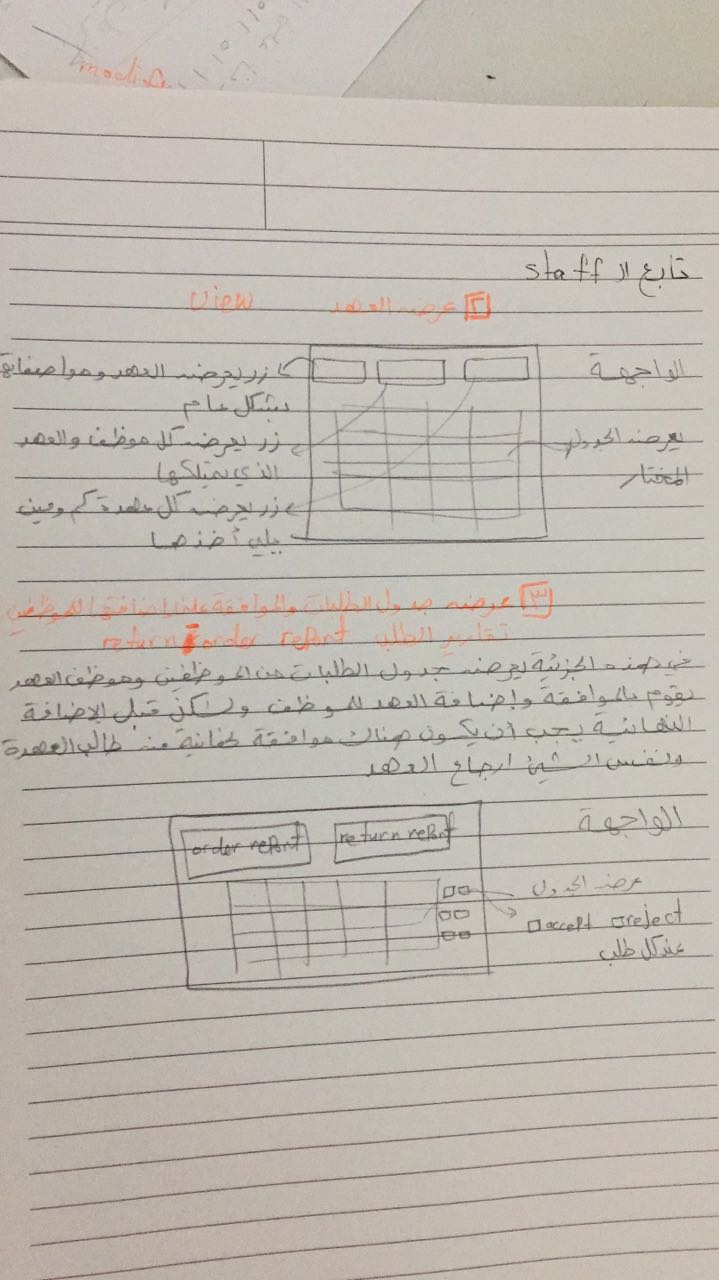 modi
تابع ال staff
[٢] عرض العهد view
الواجهة
زر يعرض العهد ومواصفاتها
بشكل عام
يعرض الجدول
المختار
زر يعرض كل موظف والعهد
الذي يمتلكها
زر يعرض كل عهدة كم ومين
يلي أخذها
[٣] عرض جدول الطلبات والموافقة على إضافتها للموظفين
تقارير الطلب return order report
في هذه الجزئية يعرض جدول الطلبات من الموظفين وموظف العهد
يقوم بالموافقة وإضافة العهد للموظف ولكن قبل الإضافة
النهائية يجب أن يكون هناك موافقة من طالب العهدة
ونفس الشيئ ارجاع العهد
الواجهة
order report
return report
عرض الجدول
accept reject
عند كل طلب